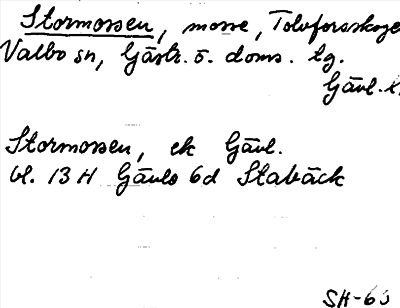 Stormossen, mosse, Tolvforsskoge
Valbo sn, Gästr. ö. doms. tg.
Gävl. l.
Stormossen, ek Gävl.
bl. 13 H Gävle 6d Stabäck
SH-63